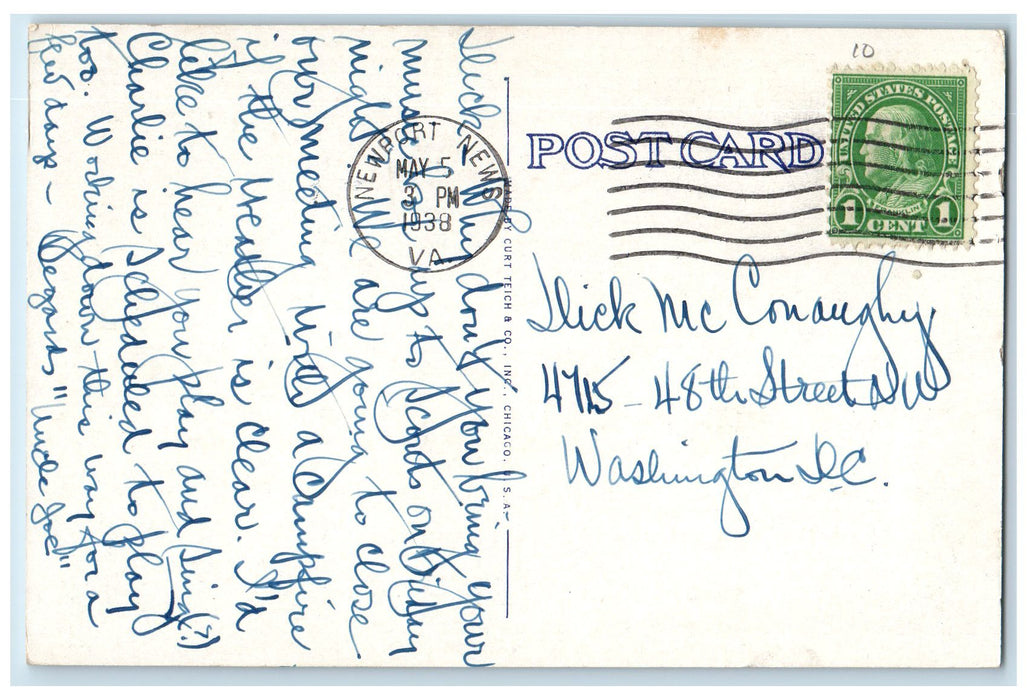 Dick, Why don't you bring your
music up to Scouts on Friday
night. We are going to close
our meeting with a Campfire
if the weather is clear. I'd
like to hear you play and sing(?)
Charlie is scheduled to play
too. Working down this way for a
few days — Regards "Uncle Joe"
NEWPORT NEWS
MAY 5
3 PM
1938
VA
MADE BY CURT TEICH & CO., INC., CHICAGO, U.S.A.
POST CARD
10
UNITED STATES POSTAGE
1 CENT 1
Dick McConaughy
4715 - 48th Street NW
Washington D.C.